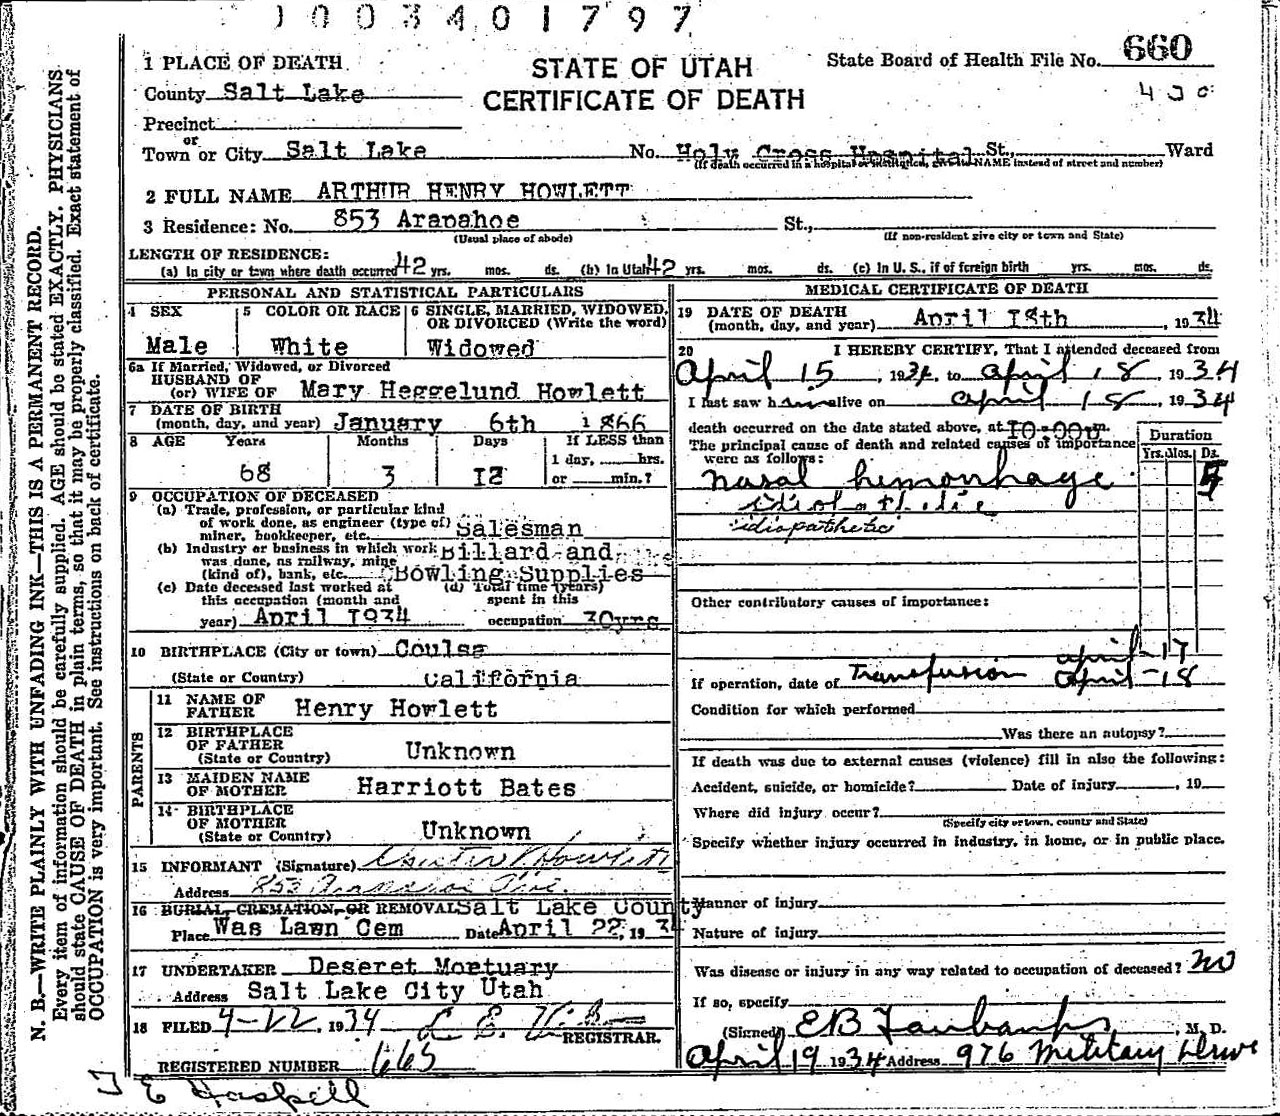 1003401797
STATE OF UTAH
CERTIFICATE OF DEATH
State Board of Health File No. 660
430
1 PLACE OF DEATH
County Salt Lake
Precinct
or
Town or City Salt Lake No. Holy Cross Hospital St., Ward
(If death occurred in a hospital or institution, give its NAME instead of street and number)
2 FULL NAME ARTHUR HENRY HOWLETT
3 Residence: No. 853 Arapahoe St.,
(Usual place of abode) (If non-resident give city or town and State)
LENGTH OF RESIDENCE:
(a) In city or town where death occurred 42 yrs. mos. ds. (b) In Utah 42 yrs. mos. ds. (c) In U. S., if of foreign birth yrs. mos. ds.
PERSONAL AND STATISTICAL PARTICULARS
4 SEX
Male
5 COLOR OR RACE
White
6 SINGLE, MARRIED, WIDOWED,
OR DIVORCED (Write the word)
Widowed
6a If Married, Widowed, or Divorced
HUSBAND OF
(or) WIFE OF Mary Heggelund Howlett
7 DATE OF BIRTH
(month, day, and year) January 6th 1866
8 AGE Years Months Days If LESS than
1 day, hrs.
68 3 12 or min.?
9 OCCUPATION OF DECEASED
(a) Trade, profession, or particular kind
of work done, as engineer (type of)
miner, bookkeeper, etc. Salesman
(b) Industry or business in which work
was done, as railway, mine
(kind of), bank, etc. Billard and
Bowling Supplies
(c) Date deceased last worked at
this occupation (month and
year) April 1934
(d) Total time (years)
spent in this
occupation 30yrs
10 BIRTHPLACE (City or town) Coulsa
(State or Country) California
PARENTS
11 NAME OF
FATHER Henry Howlett
12 BIRTHPLACE
OF FATHER
(State or Country) Unknown
13 MAIDEN NAME
OF MOTHER Harriott Bates
14 BIRTHPLACE
OF MOTHER
(State or Country) Unknown
15 INFORMANT (Signature) Howlett
Address 853 Arapahoe Ave.
16 BURIAL, CREMATION, OR REMOVAL Salt Lake County
Place Was Lawn Cem Date April 22, 1934
17 UNDERTAKER Deseret Mortuary
Address Salt Lake City Utah
18 FILED 4-22, 1934
REGISTRAR.
REGISTERED NUMBER 665
MEDICAL CERTIFICATE OF DEATH
19 DATE OF DEATH
(month, day, and year) April 18th, 1934
20 I HEREBY CERTIFY, That I attended deceased from
April 15, 1934, to April 18 1934
I last saw him alive on April 18 1934
death occurred on the date stated above, at 10-00 m.
The principal cause of death and related causes of importance
were as follows:
Duration
Yrs. Mos. Ds.
Nasal hemorrhage
idiopathetic
Other contributory causes of importance:
April-17
If operation, date of Transfusion April-18
Condition for which performed
Was there an autopsy?
If death was due to external causes (violence) fill in also the following:
Accident, suicide, or homicide? Date of injury, 19
Where did injury occur?
(Specify city or town, county and State)
Specify whether injury occurred in industry, in home, or in public place.
Manner of injury
Nature of injury
Was disease or injury in any way related to occupation of deceased? No
If so, specify
(Signed) EB Fairbanks, M. D.
April 19 1934 Address 976 Military Drive
T E Haskell
N. B.—WRITE PLAINLY WITH UNFADING INK—THIS IS A PERMANENT RECORD.
Every item of information should be carefully supplied. AGE should be stated EXACTLY. PHYSICIANS
should state CAUSE OF DEATH in plain terms, so that it may be properly classified. Exact statement of
OCCUPATION is very important. See instructions on back of certificate.